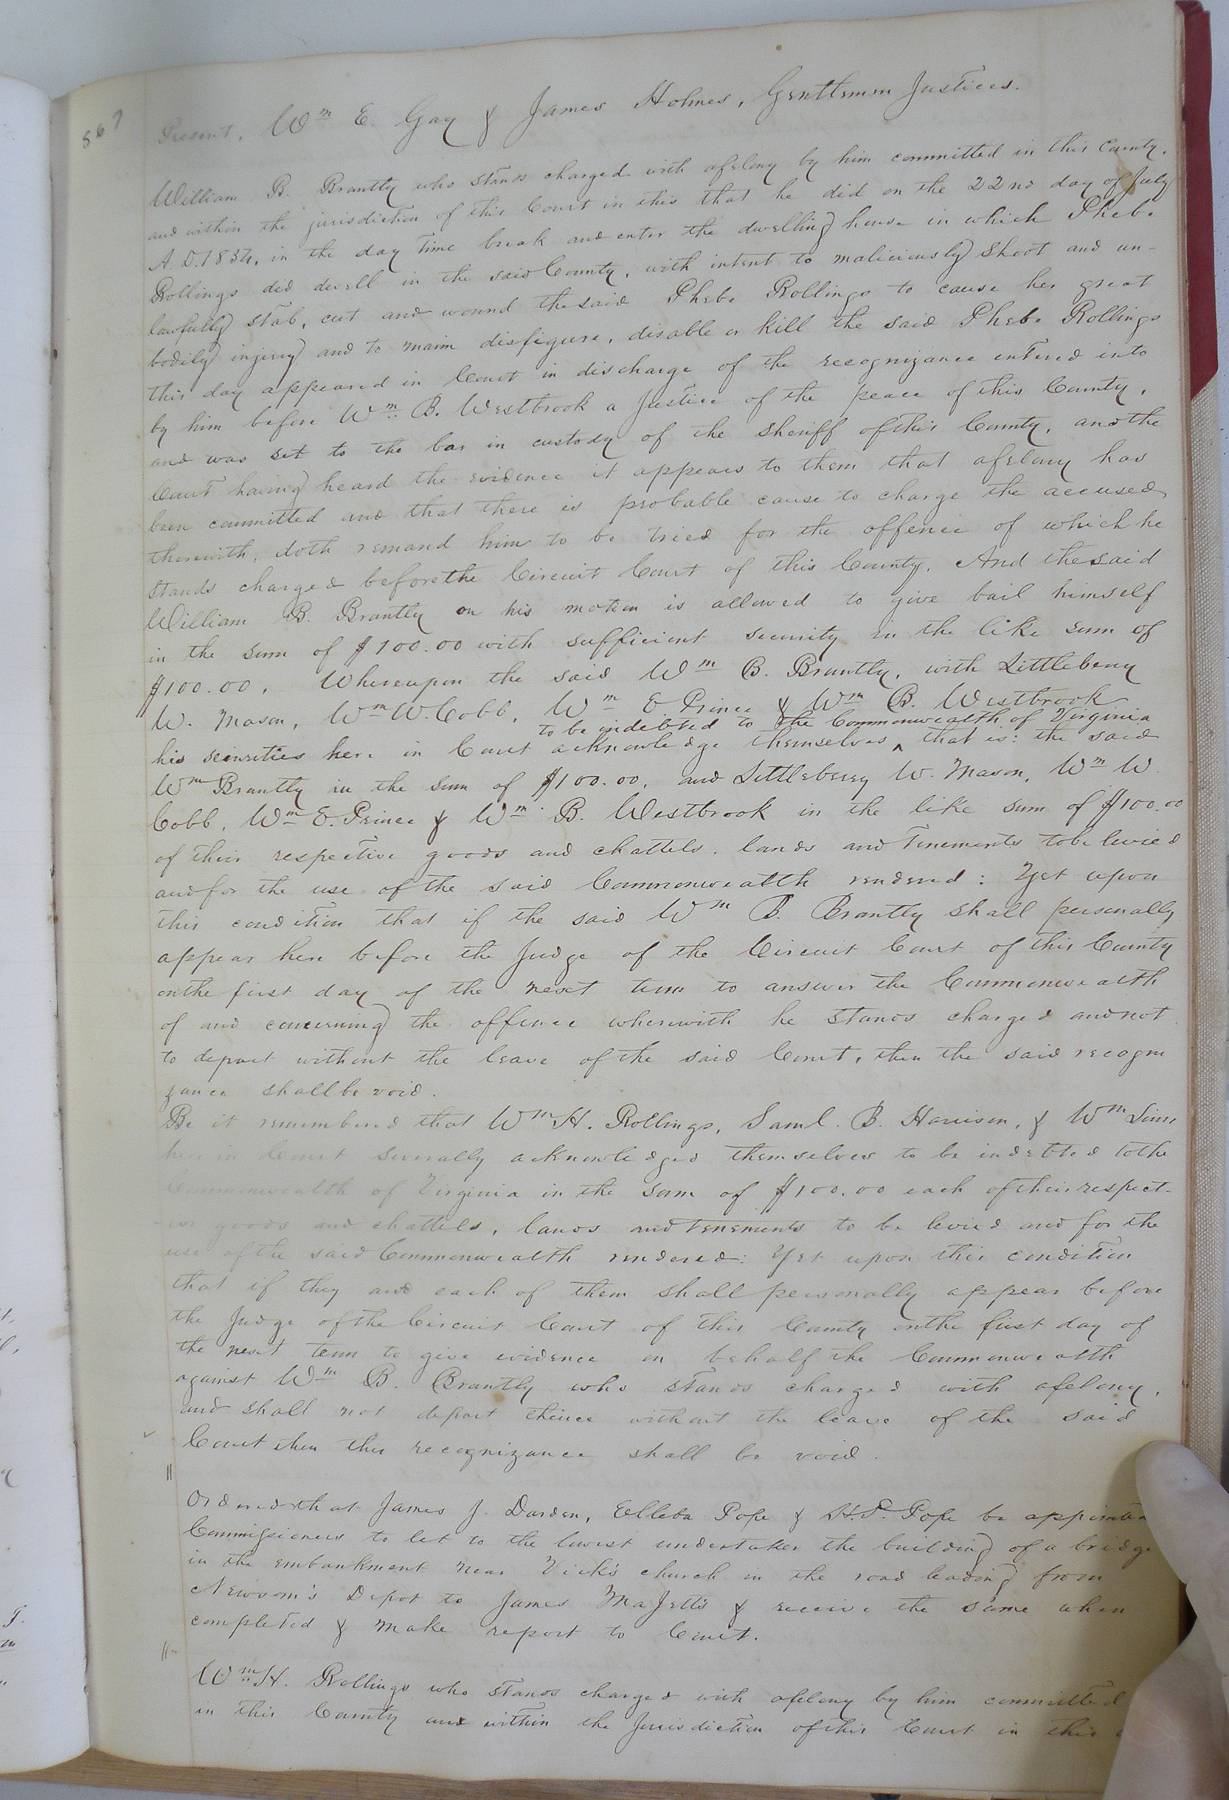 567
Present, Wm E. Gay & James Holmes, Gentlemen Justices.
William B. Brantly who stands charged with a felony by him committed in this County,
and within the jurisdiction of this Court in this that he did on the 22nd day of July
A.D. 1854, in the day time break and enter the dwelling house in which Phebe
Rollings did dwell in the said County, with intent to maliciously shoot and un-
lawfully stab, cut and wound the said Phebe Rollings to cause her great
bodily injury and to maim disfigure, disable or kill the said Phebe Rollings
this day appeared in Court in discharge of the recognizance entered into
by him before Wm B. Westbrook a Justice of the peace of this County,
and was set to the bar in custody of the sheriff of this County, and the
Court having heard the evidence it appears to them that a felony has
been committed and that there is probable cause to charge the accused
therewith, doth remand him to be tried for the offence of which he
stands charged before the Circuit Court of this County. And the said
William B. Brantly on his motion is allowed to give bail himself
in the sum of $100.00 with sufficient security in the like sum of
$100.00. Whereupon the said Wm B. Brantly, with Littleberry
W. Mason, Wm W. Cobb, Wm E Prince & Wm B. Westbrook
to be indebted to the Commonwealth of Virginia
his securities here in Court acknowledge themselves ^ that is: the said
Wm Brantly in the sum of $100.00, and Littleberry W. Mason, Wm W.
Cobb, Wm E. Prince & Wm B. Westbrook in the like sum of $100.00
of their respective goods and chattels. lands and Tenements to be levied
and for the use of the said Commonwealth rendered: Yet upon
this condition that if the said Wm B. Brantly shall personally
appear here before the Judge of the Circuit Court of this County
on the first day of the next term to answer the Commonwealth
of and concerning the offence wherewith he stands charged and not
to depart without the leave of the said Court, then the said recogni
zance shall be void.
Be it remembered that Wm H. Rollings, Saml. B. Harrison, & Wm
here in Court severally acknowledged themselves to be indebted to the
Commonwealth of Virginia in the sum of $100.00 each of their respect-
ive goods and chattels, lands and Tenements to be levied and for the
use of the said Commonwealth rendered: Yet upon this condition
that if they and each of them shall personally appear before
the Judge of the Circuit Court of this County on the first day of
the next term to give evidence on behalf the Commonwealth
against Wm B. Brantly who stands charged with a felony,
and shall not depart thence without the leave of the said
Court then this recognizance shall be void.
Ordered that James J. Darden, Elleba Pope & H.P. Pope be appointed
Commissioners to let to the lowest undertaker the building of a bridge
in the embankment near Vick's church in the road leading from
Newsom's Depot to James Majett's & receive the same when
completed & make report to Court.
Wm H. Rollings who stands charged with a felony by him committed
in this County and within the Jurisdiction of this Court in this